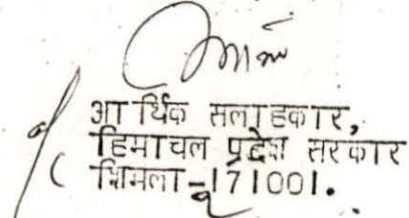 आर्थिक सलाहकार,
हिमाचल प्रदेश सरकार
शिमला-171001.